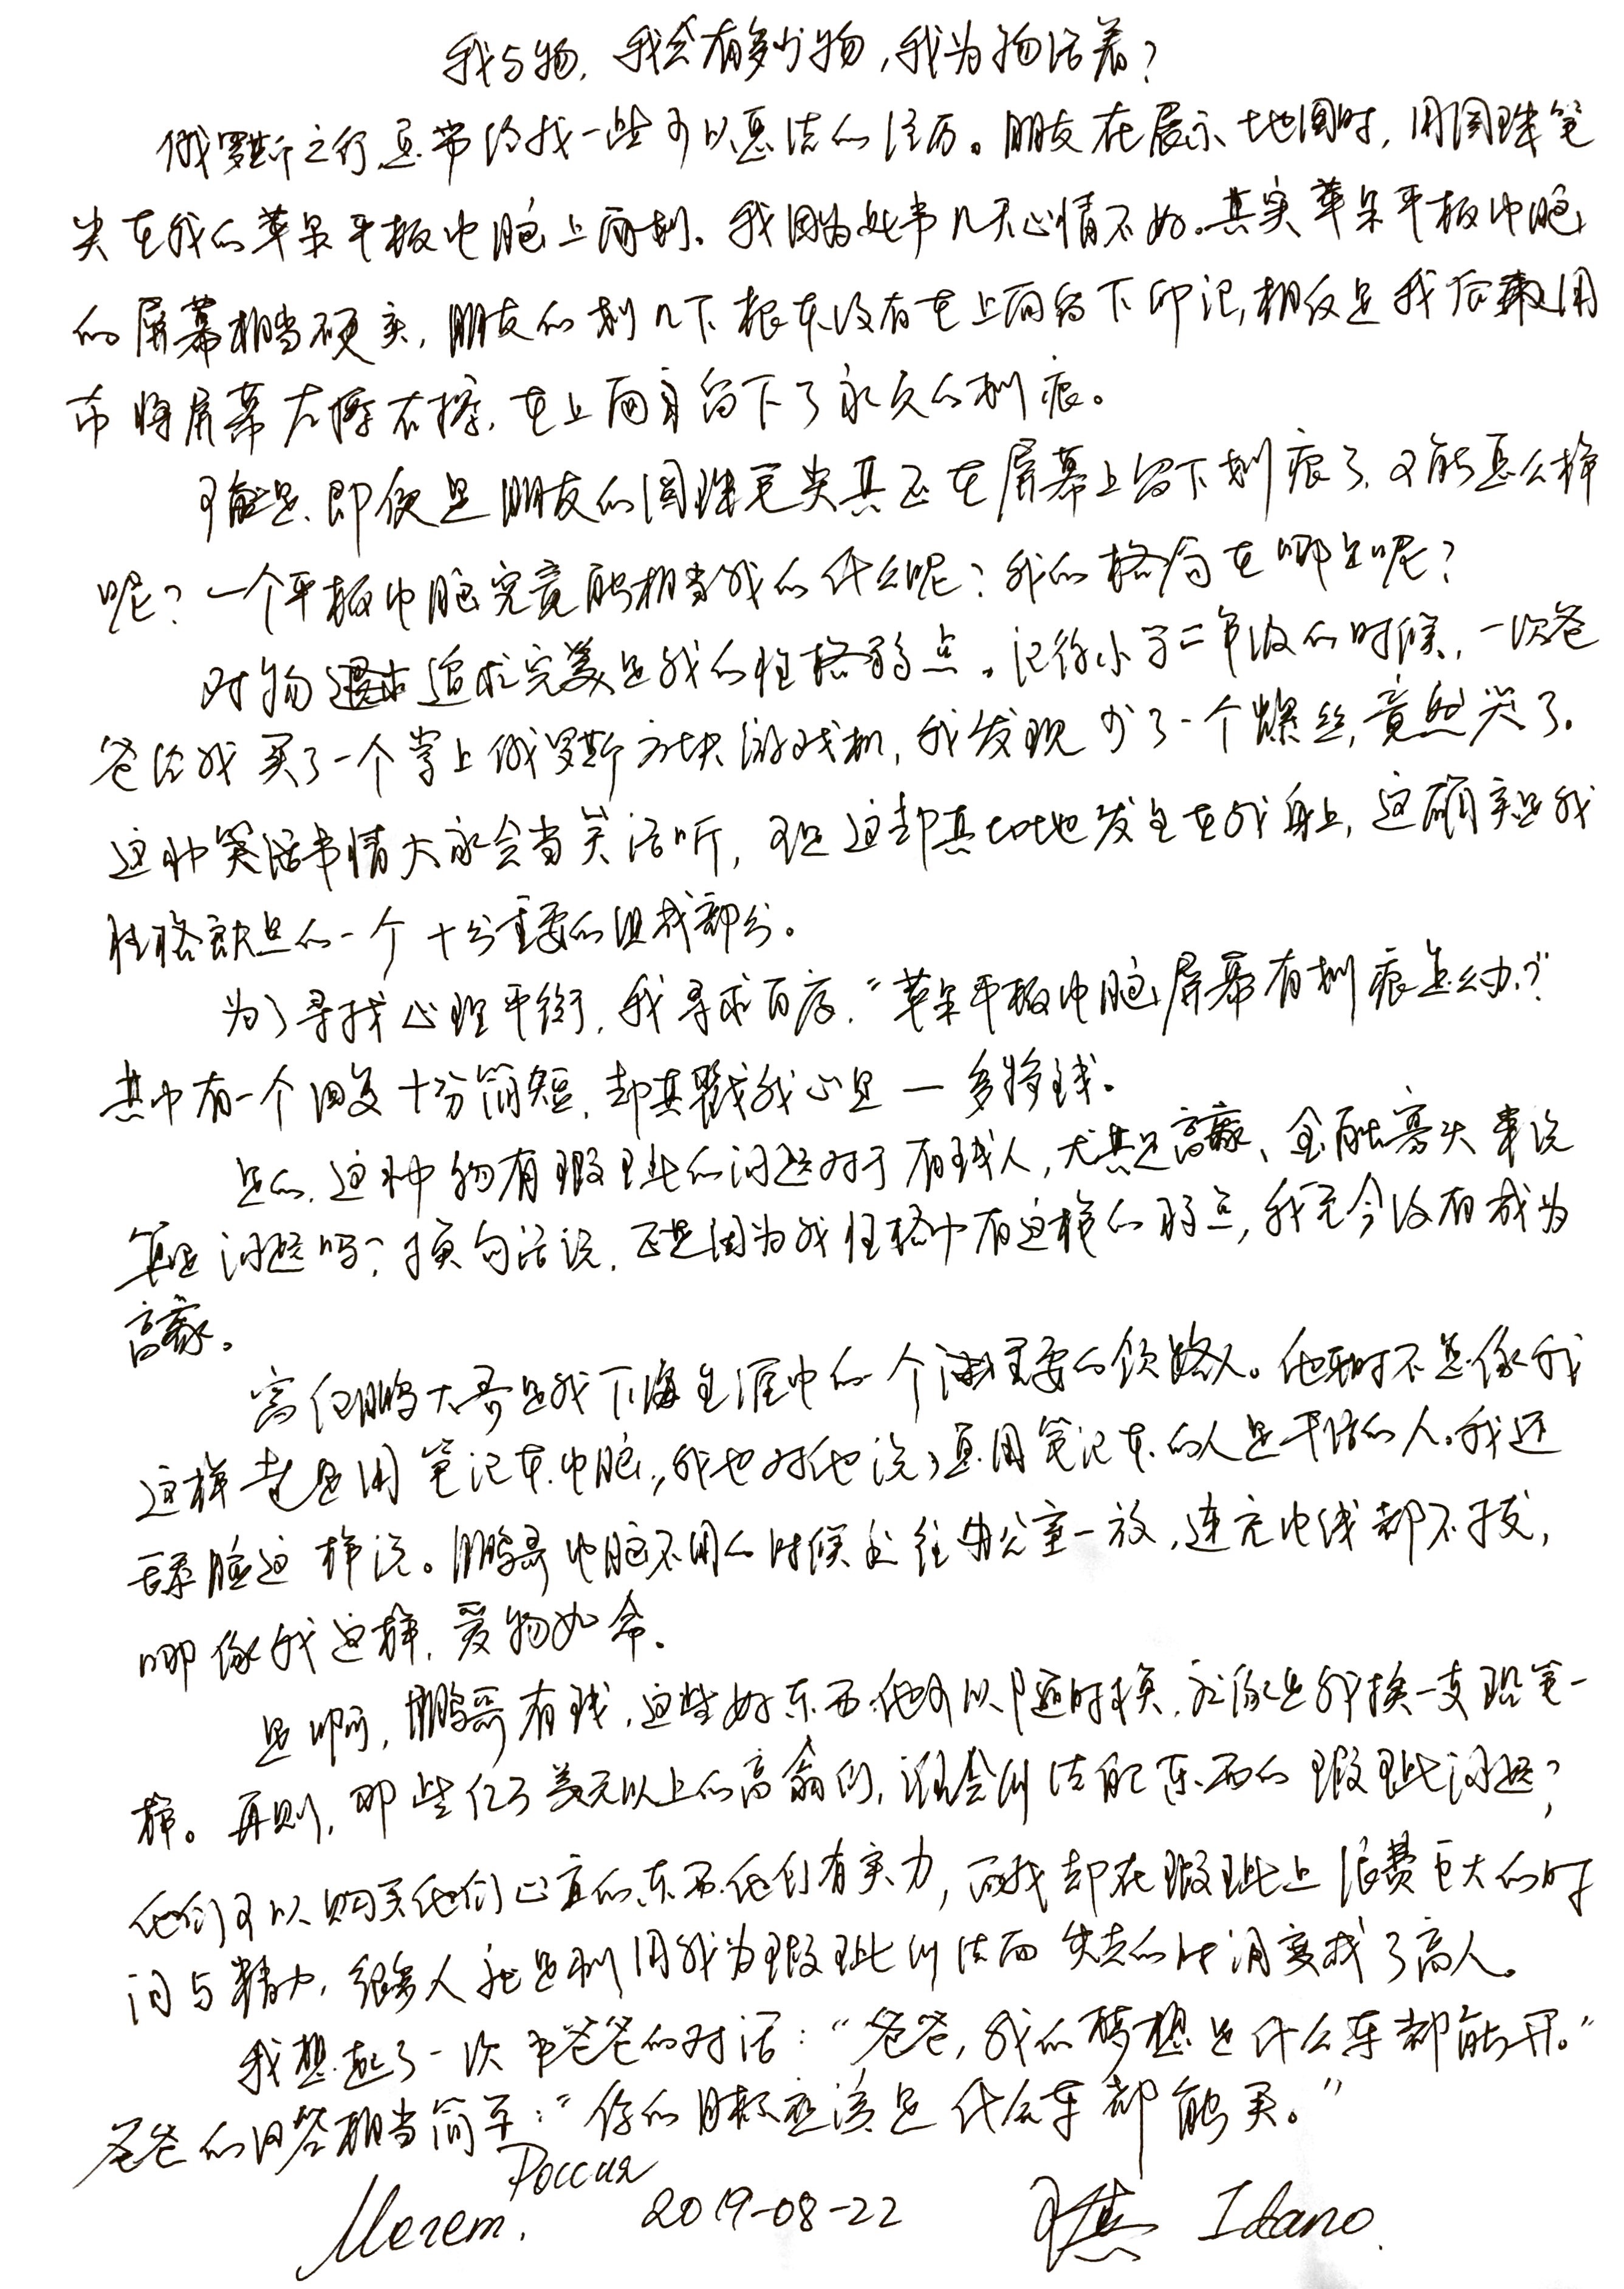 我与物，我会有多少物，我为物活着？
俄罗斯之行，总带给我一些可以思洁的经历。朋友在展示地图时，用圆珠笔
尖在我的苹果平板电脑上面划。我因为此事几天心情不好。其实苹果平板电脑
的屏幕相当硬实，朋友的划几下根本没有在上面留下印记，相反是我后来用
布将屏幕左擦右擦，在上面留下了永久的划痕。
可能是，即便是朋友的圆珠笔尖真正在屏幕上留下划痕了，又能怎么样
呢？一个平板电脑究竟能相当我的什么呢？我的格局在哪里呢？
对物追求完美是我的性格弱点。记得小学二年级的时候，一次爸
爸给我买了一个掌上俄罗斯方块游戏机，我发现少了一个螺丝，竟然哭了。
这种笑话事情大家会当笑话听，可是这却真切地发生在我身上，这确实是我
性格缺点的一个十分重要的组成部分。
为了寻找心理平衡，我寻求百度，“苹果平板电脑屏幕有划痕怎么办？”
其中有一个回复十分简短，却真戳我心里一多挣钱。
是的，这种物有瑕疵的问题对于有钱人，尤其是富豪、金融寡头来说
算是问题吗？换句话说，正是因为我性格中有这样的弱点，我至今没有成为
富豪。
大哥是我下海生涯中的一个重要的领路人。他那时不是像我
这样老是用笔记本电脑，我也对他说，总用笔记本的人是干活的人。我还
舔脸这样说。鹏哥电脑不用的时候就往办公室一放，连充电线都不拔，
哪像我这样，爱物如命。
是啊，鹏哥有钱，这些好东西他可以随时换，就像是我换一支铅笔一
样。再则，那些亿万美元以上的富翁们，谁会纠结自己东西的瑕疵问题？
他们可以购买他们心宜的东西，他们有实力，而我却在瑕疵上浪费巨大的时
间与精力，很多人就是利用我为瑕疵纠结而失去的时间变成了富人。
我想起了一次和爸爸的对话：“爸爸，我的梦想是什么车都能开。”
爸爸的回答相当简单：“你的目标应该是什么车都能买。”
Россия
Мегет. 2019-08-22 Idano.